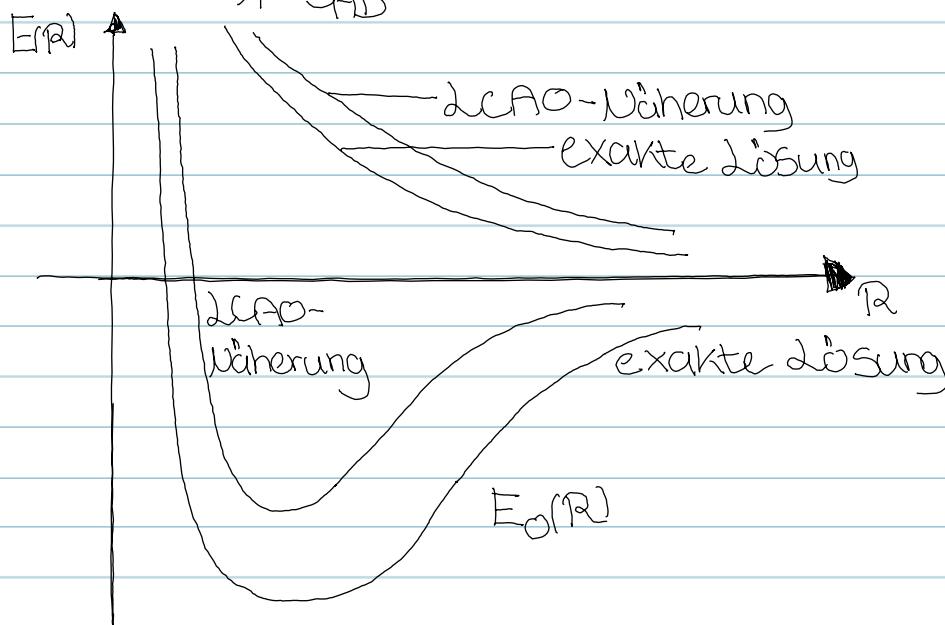 E(R)
LCAO-Näherung
exakte Lösung
R
LCAO-
Näherung
exakte Lösung
E₀(R)